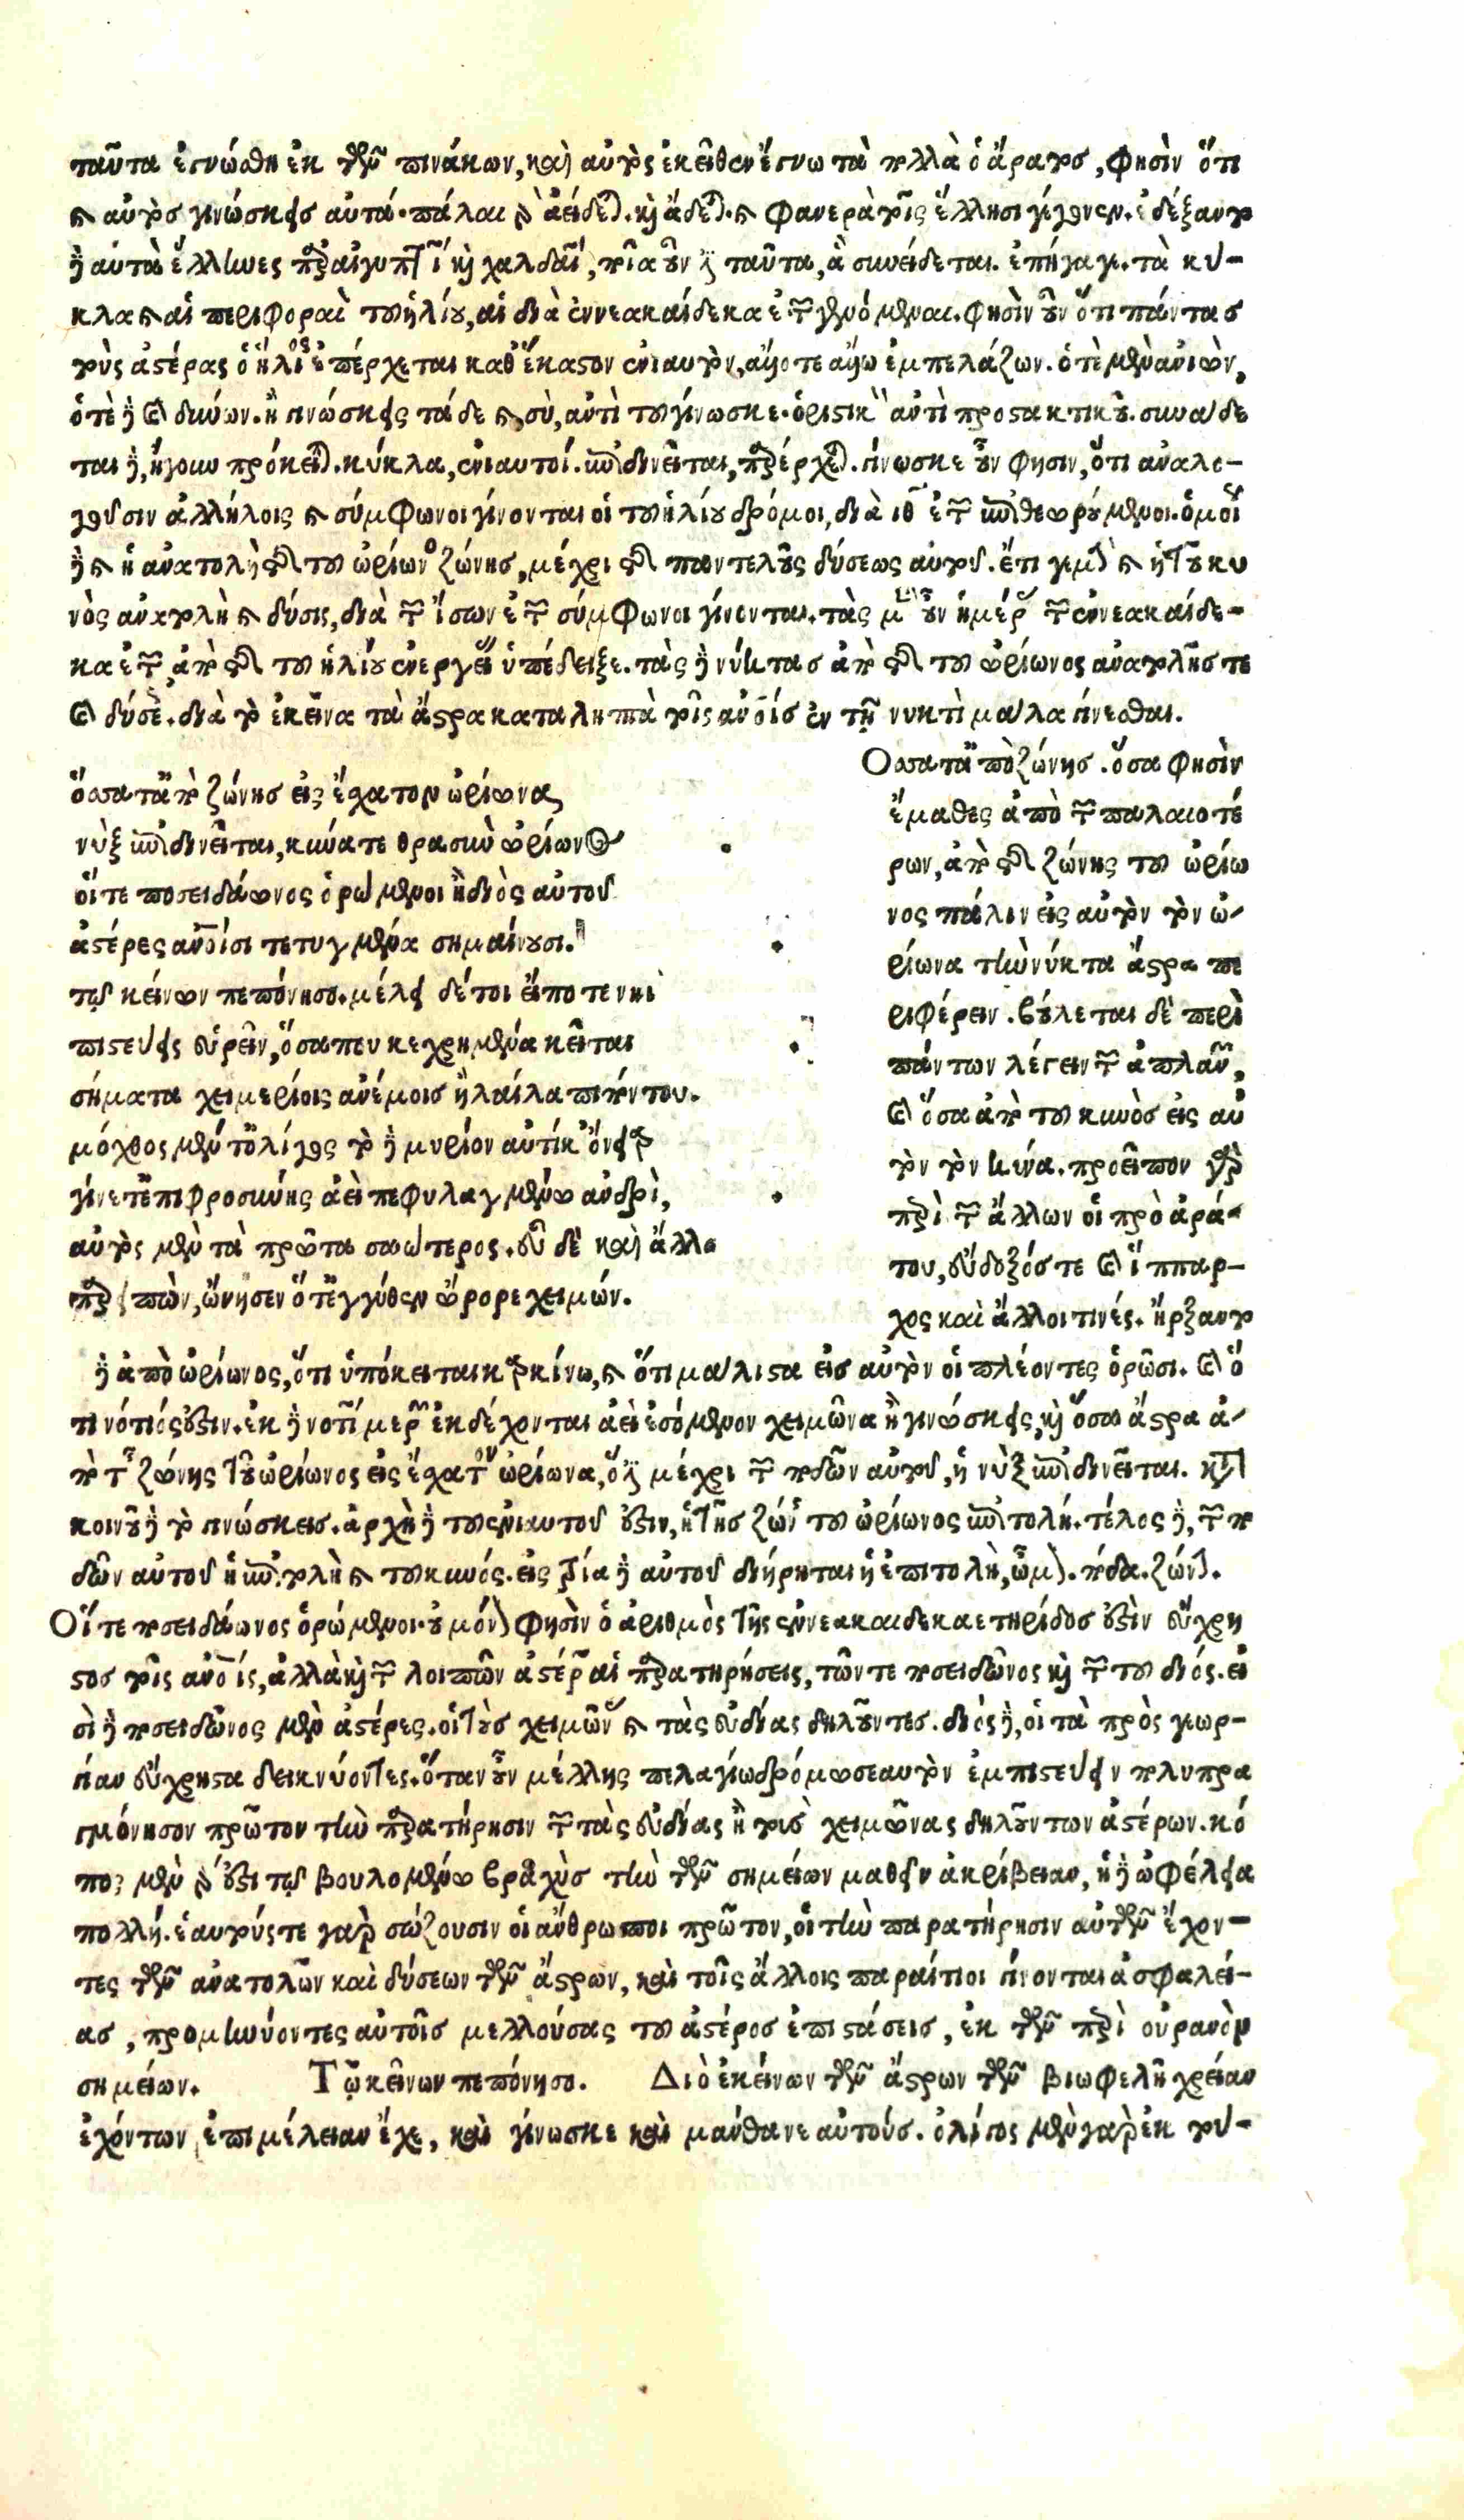 ταῦτα ἐγνώσθη ἐκ τῶν πινάκων, καὶ αὐτὸς ἐκεῖθεν ἔγνω τὰ πολλὰ ὁ ἄρατος, φησὶν ὅτι
καὶ αὐτὸς γινώσκεις αὐτά. πάλαι γὰρ ἀείδεται. καὶ ᾄδεται. καὶ φανερὰ τοῖς ἕλλησι γέγονεν. ἐδέξαντο
δὲ αὐτὰ ἕλληνες παρ' αἰγυπτίων καὶ χαλδαίων, ποῖα οὖν ἐστι ταῦτα, ἃ συνείδεται. ἐπήγαγε. τὰ κύ-
κλα καὶ αἱ περιφοραὶ τοῦ ἡλίου, αἱ διὰ ἐννεακαίδεκα ἐτῶν γενόμεναι. φησὶν οὖν ὅτι πάντας
τοὺς ἀστέρας ὁ ἥλιος ἐπέρχεται καθ' ἕκαστον ἐνιαυτὸν, ἄλλοτε ἄλλῳ ἐμπελάζων. ὁτὲ μὲν ἀνιὼν,
ὁτὲ δὲ καὶ δύνων. ἢ γινώσκεις τάδε καὶ σὺ, ἀντὶ τοῦ γίνωσκε. ὁριστικὸν ἀντὶ προστακτικοῦ. συναείδε
ται δὲ, ἤγουν πρόκειται. κύκλα, ἐνιαυτοί. ἐπιδινεῖται, παρέρχεται. γίνωσκε οὖν φησιν, ὅτι ἀναλο-
γοῦσιν ἀλλήλοις καὶ σύμφωνοι γίνονται οἱ τοῦ ἡλίου δρόμοι, διὰ ιθ ἐτῶν ἐπιθεωρούμενοι. ὁμοίως
δὲ καὶ ἡ ἀνατολὴ τῆς τοῦ ὠρίωνος ζώνης, μέχρι τῆς παντελοῦς δύσεως αὐτοῦ. ἔτι γε μὴν καὶ ἡ τοῦ κυ
νὸς ἀνατολὴ καὶ δύσις, διὰ τῶν ἴσων ἐτῶν σύμφωνοι γίνονται. τὰς μὲν οὖν ἡμέρας τῶν ἐννεακαίδε-
κα ἐτῶν ἀπὸ τῆς τοῦ ἡλίου ἐνεργείας ὑπέδειξε. τὰς δὲ νύκτας ἀπὸ τῆς τοῦ ὠρίωνος ἀνατολῆς τε
καὶ δύσεως. διὰ τὸ ἐκεῖνα τὰ ἄστρα καταληπτὰ τοῖς ἀνθρώποις ἐν τῇ νυκτὶ μάλα γίνεσθαι.
ὅσσα τ' ἀπὸ ζώνης εἰς ἔσχατον ὠρίωνα
νὺξ ἐπιδινεῖται, κύνα τε θρασὺν ὠρίωνος
οἵ τε ποσειδάωνος ὁρώμενοι ἢ διὸς αὐτοῦ
ἀστέρες ἀνθρώποισι τετυγμένα σημαίνουσι.
τῷ κείνων πεπόνησο. μέλει δέ τοι εἴποτε νηῒ
πιστεύεις εὑρεῖν, ὅσα που κεχρημένα κεῖται
σήματα χειμερίοις ἀνέμοις ἢ λαίλαπι πόντου.
μόχθος μέν τ' ὀλίγος τὸ δὲ μυρίον αὐτίκ' ὄνειαρ
γίνετ' ἐπιφροσύνης ἀεὶ πεφυλαγμένῳ ἀνδρὶ,
αὐτὸς μὲν τὰ πρῶτα σαώτερος. εὖ δὲ καὶ ἄλλον
παρειπὼν, ὤνησεν ὅτ' ἐγγύθεν ὤρορε χειμών.
Οσσα τ' ἀπὸ ζώνης. ὅσα φησὶν
ἔμαθες ἀπὸ τῶν παλαιοτέ
ρων, ἀπὸ τῆς ζώνης τοῦ ὠρίω
νος πάλιν εἰς αὐτὸν τὸν ὠ-
ρίωνα τὴν νύκτα ἄστρα πε
ριφέρειν. βούλεται δὲ περὶ
πάντων λέγειν τῶν ἀπλανῶν,
καὶ ὅσα ἀπὸ τοῦ κυνὸς εἰς αὐ
τὸν τὸν κύνα. προεῖπον γὰρ
περὶ τῶν ἄλλων οἱ πρὸ ἀρά-
του, εὔδοξός τε καὶ ἵππαρ-
χος καὶ ἄλλοι τινές. ἤρξαντο
δὲ ἀπὸ ὠρίωνος, ὅτι ὑπόκειται καρκίνῳ, καὶ ὅτι μάλιστα εἰς αὐτὸν οἱ πλέοντες ὁρῶσι. καὶ ὅ
τι νότιός ἐστιν. ἐκ δὲ νοτίων μερῶν ἐκδέχονται ἀεὶ ἐσόμενον χειμῶνα ἢ γινώσκεις, καὶ ὅσα ἄστρα ἀ-
πὸ τῆς ζώνης τοῦ ὠρίωνος εἰς ἔσχατον ὠρίωνα, ὅ ἐστι μέχρι τῶν ποδῶν αὐτοῦ, ἡ νὺξ ἐπιδινεῖται. κατὰ
κοινοῦ δὲ τὸ γινώσκεις. ἀρχὴ δὲ τοῦ ἐνιαυτοῦ ἐστιν, ἡ τῆς ζώνης τοῦ ὠρίωνος ἐπιτολή. τέλος δὲ, τῶν πο
δῶν αὐτοῦ ἡ ἐπιτολὴ καὶ τοῦ κυνός. εἰς τρία δὲ αὐτοῦ διῄρηται ἡ ἐπιτολὴ, ὦμον. πόδα. ζώνην.
Οἵ τε ποσειδάωνος ὁρώμενοι. οὐ μόνον φησὶν ὁ ἀριθμὸς τῆς ἐννεακαιδεκαετηρίδος ἐστὶν εὔχρη
στος τοῖς ἀνθρώποις, ἀλλὰ καὶ τῶν λοιπῶν ἀστέρων αἱ παρατηρήσεις, τῶν τε ποσειδῶνος καὶ τῶν τοῦ διός. εἰ
σὶ δὲ ποσειδῶνος μὲν ἀστέρες. οἱ τοὺς χειμῶνας καὶ τὰς εὐδίας δηλοῦντες. διὸς δὲ, οἱ τὰ πρὸς γεωρ-
γίαν εὔχρηστα δεικνύοντες. ὅταν οὖν μέλλης πελαγίῳ δρόμῳ σεαυτὸν ἐμπιστεύειν πολυπρα
γμόνησον πρῶτον τὴν παρατήρησιν τῶν τὰς εὐδίας ἢ τοὺς χειμῶνας δηλούντων ἀστέρων. κό
πος μὲν γάρ ἐστι τῷ βουλομένῳ βραχὺς τὴν τῶν σημείων μαθεῖν ἀκρίβειαν, ἡ δὲ ὠφέλεια
πολλή. ἑαυτούς τε γὰρ σώζουσιν οἱ ἄνθρωποι πρῶτον, οἱ τὴν παρατήρησιν αὐτῶν ἔχον-
τες τῶν ἀνατολῶν καὶ δύσεων τῶν ἄστρων, καὶ τοῖς ἄλλοις παραίτιοι γίνονται ἀσφαλεί-
ας, προμηνύοντες αὐτοῖς μελλούσας τοῦ ἀστέρος ἐπιστάσεις, ἐκ τῶν περὶ οὐρανὸν
σημείων. Τῷ κείνων πεπόνησο. Διὸ ἐκείνων τῶν ἄστρων τῶν βιωφελῆ χρείαν
ἐχόντων ἐπιμέλειαν ἔχε, καὶ γίνωσκε καὶ μάνθανε αὐτούς. ὀλίγος μὲν γὰρ ἐκ τού-